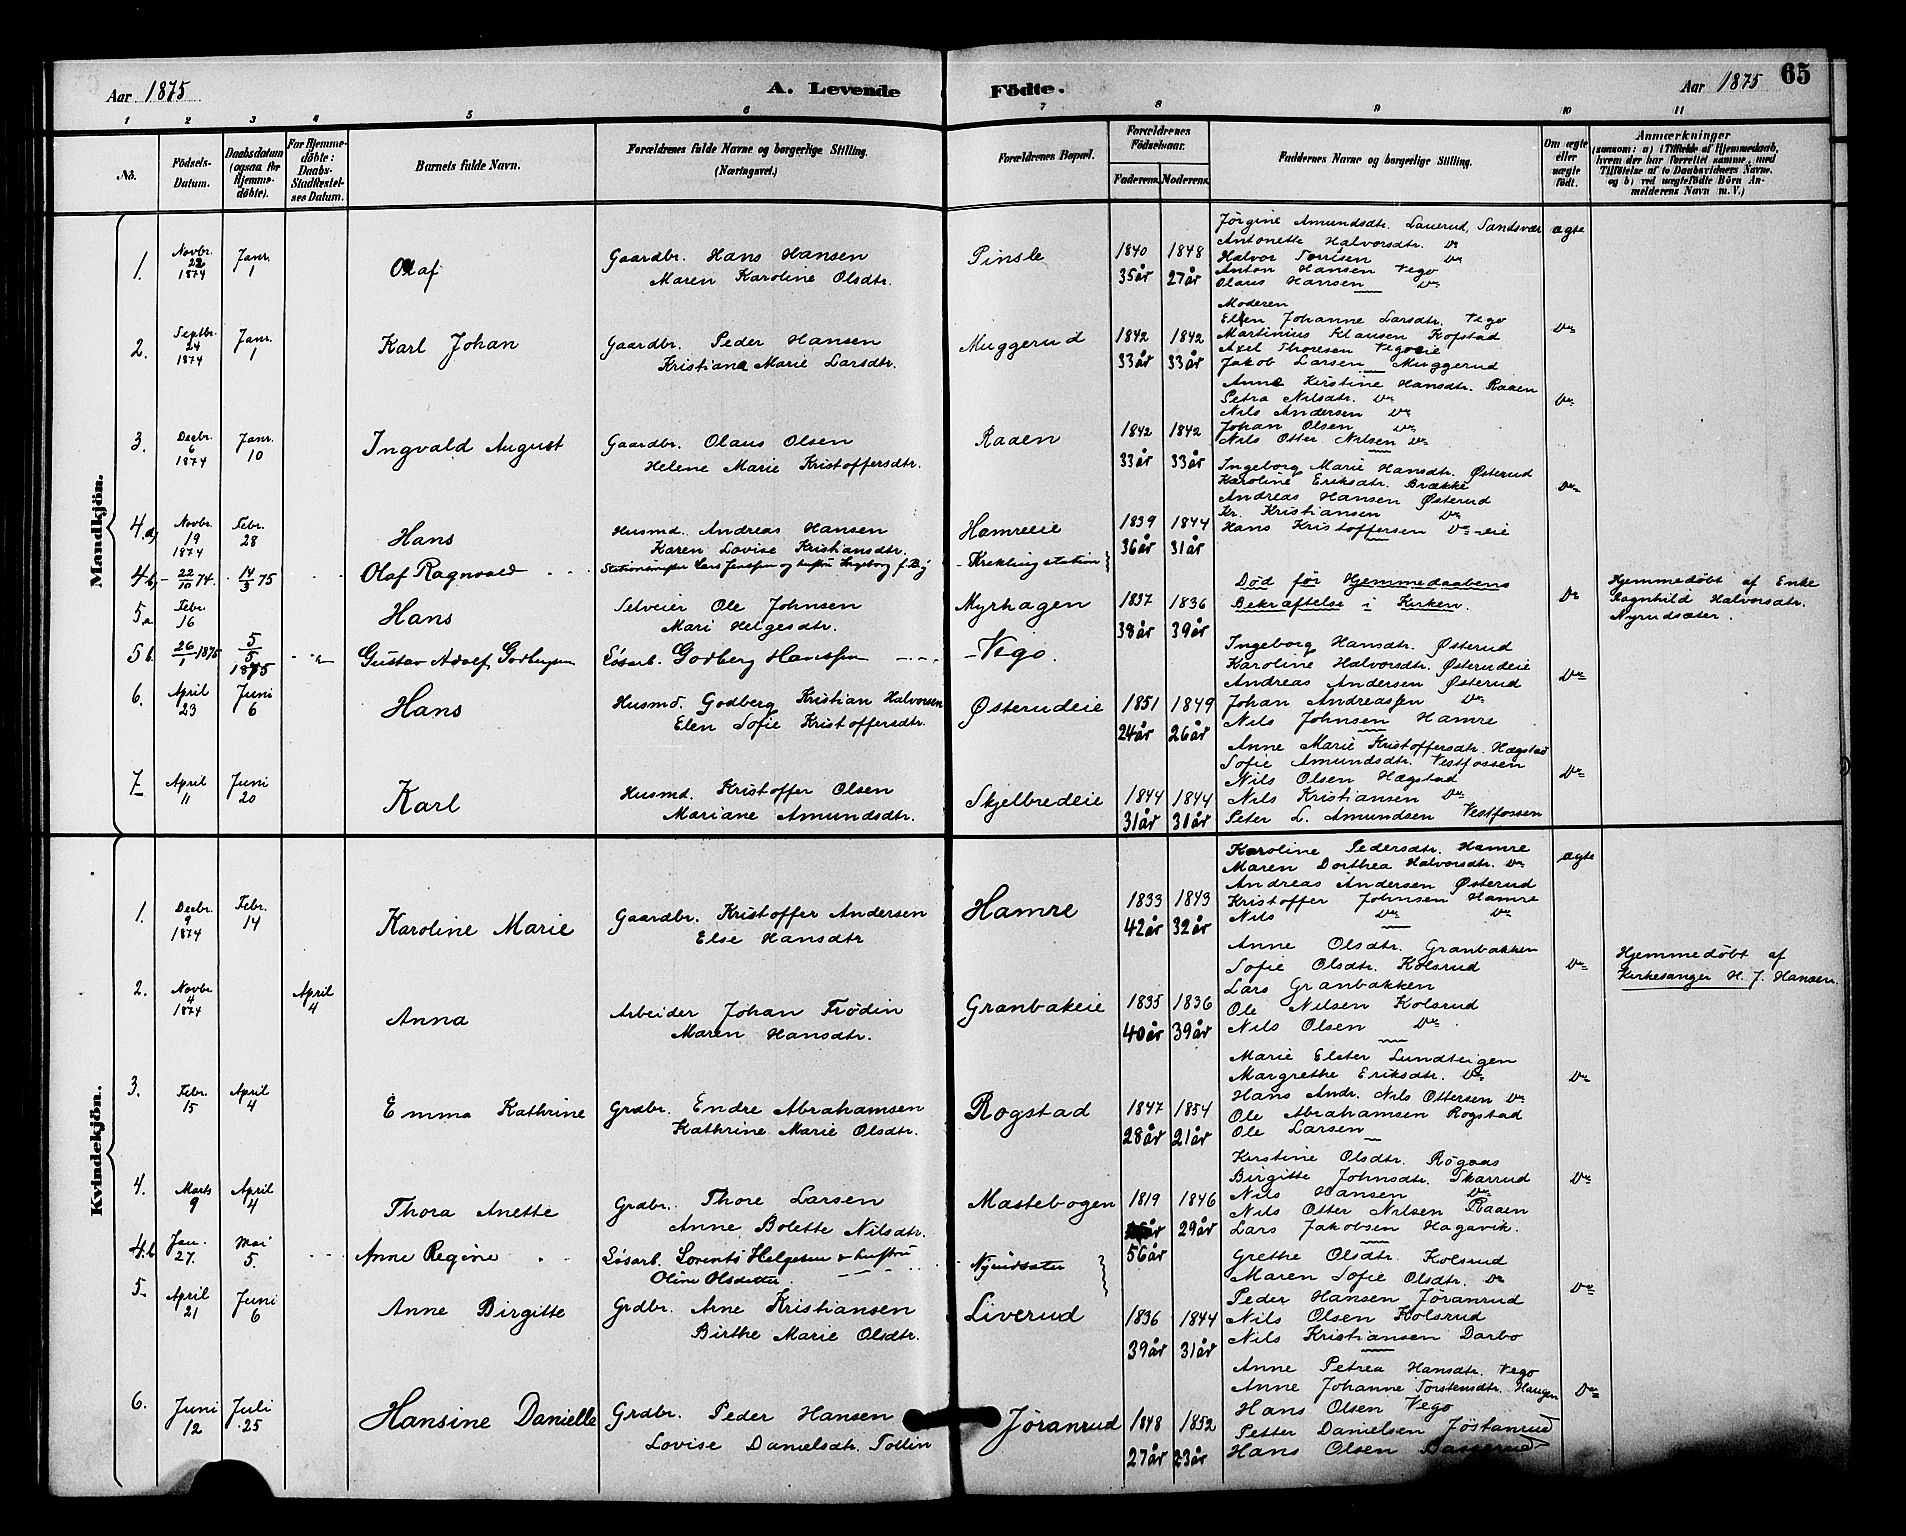 Aar 1875
A. Levende
Fødte.
Aar 1875
65
1 2 3 4 5 6 7 8 9 10 11
No.
Fødsels-Datum.
Daabsdatum (ogsaa for Hjemme-døbte).
For Hjemme-døbte: Daabs-Stadfæstel-ses Datum.
Barnets fulde Navn.
Forældrenes fulde Navne og borgerlige Stilling. (Næringsvei.)
Forældrenes Bopæl.
Forældrenes Fødselsaar.
Faderens. Moderens.
Faddernes Navne og borgerlige Stilling.
Om ægte eller uægte født.
Anmærkninger (saasom: a) i Tilfælde af Hjemmedaab, hvem der har forrettet samme, med Tilføielse af to Daabsvidners Navne, og b) ved uægtefødte Børn An-melderens Navn m. V.)
Mandkjøn.
1. Novbr. 22 1874 Janr. 1 Olaf
Gaardbr. Hans Hansen
Maren Karoline Olsdtr.
Pinsle 1840 1848
35år 27år
Jørgine Amundsdtr. Lauerud, Sandsvær ægte
Antonette Halvorsdtr. Do
Halvor Torrisen Do
Anton Hansen Vego
Olaus Hansen Do
2. Septbr. 24 1874 Janr. 1 Karl Johan
Gaardbr. Peder Hansen
Kristiane Marie Larsdtr.
Muggerud 1842 1842
33år 33år
Moderen
Ellen Johanne Larsdtr. Vego Do
Martinius Klausen Kopstad
Axel Thoresen Vegoeie
Jakob Larsen Muggerud
3. Decbr. 6 1874 Janr. 10 Ingvald August
Gaardbr. Olaus Olsen
Helene Marie Kristoffersdtr.
Raaen 1842 1842
33år 33år
Anne Kirstine Hansdtr. Raaen
Petra Nilsdtr. Do Do
Nils Andersen Do
Johan Olsen Do
Nils Otter Nilsen Do
4 a, Novbr. 19 1874 Febr. 28 Hans
Husmd. Andreas Hansen
Karen Lovise Kristiansdtr.
Hamreeie 1839 1844
36år 31år
Ingeborg Marie Hansdtr. Østerud
Karoline Eriksdtr. Brække Do
Andreas Hansen Østerud
Kr. Kristiansen Do
Hans Kristoffersen Do-eie
4 b, 22/10 74. 14/3 75 Olaf Ragnvald
Krekling station
5 a Febr. 16 Hans
Selveier Ole Johnsen
Mari Helgesdtr.
Myrhagen 1837 1836
38år 39år
Død før Hjemmedaabens
Bekræftelse i Kirken. Do
Hjemmedøbt af Enke
Ragnhild Halvorsdtr.
Nyrudsæter.
5 b. 26/1 1875 5/5 1875 Gustav Adolf Godbergsen
Løsarb. Godberg Hanssen
Vego.
6. April 23 Juni 6 Hans
Husmd. Godberg Kristian Halvorsen
Elen Sofie Kristoffersdtr.
Østerudeie 1851 1849
24år 26år
Ingeborg Hansdtr. Østerud
Karoline Halvorsdtr. Østerudeie
Andreas Andersen Østerud Do
Johan Andreassen Do
Nils Johnsen Hamre
7. April 11 Juni 20 Karl
Husmd. Kristoffer Olsen
Mariane Amundsdtr.
Skjelbredeie 1844 1844
31år 31år
Anne Marie Kristoffersdtr. Hægstad
Sofie Amundsdtr. Vestfossen
Nils Olsen Hægstad Do
Nils Kristiansen Do
Peter L. Amundsen Vestfossen
Kvindekjøn.
1. Decbr. 9 1874 Febr. 14 Karoline Marie
Gaardbr. Kristoffer Andersen
Else Hansdtr
Hamre 1833 1843
42år 32år
Karoline Pedersdtr. Hamre ægte
Maren Dorthea Halvorsdtr. Do
Andreas Andersen Østerud
Kristoffer Johnsen Hamre
Nils Do Do
2. Novbr 4 1874 April 4 Anna
Arbeider Johan Frødin
Maren Hansdtr.
Granbakeie 1835 1836
40år 39år
Anne Olsdtr. Granbakken
Sofie Olsdtr. Kolsrud Do
Lars Granbakken
Ole Nilsen Kolsrud
Nils Olsen Do
Hjemmedøbt af
Kirkesanger H. J. Hansen.
3. Febr. 15 April 4 Emma Kathrine
Grdbr. Endre Abrahamsen
Kathrine Marie Olsdtr.
Rogstad 1847 1854
28år 21år
Marie Elster Lundteigen
Margrethe Eriksdtr. Do Do
Hans Andr. Nils Ottersen Do
Ole Abrahamsen Rogstad
Ole Larsen
4. Marts 9 April 4 Thora Anette
Grdbr. Thore Larsen
Anne Bolette Nilsdtr.
Mastebogen 1819 1846
29år
56år
Kirstine Olsdtr. Røgaas
Birgitte Johnsdtr. Skarrud Do
Nils Hansen Do
Nils Otter Nilsen Raaen
Lars Jakobsen Hagavik.
4. b Jan. 27. Mai 5. Anne Regine
Løsarb. Lorents Helgesen & hustru
Oline Olsdatter.
Nyrudsæter
5 April 21 Juni 6 Anne Birgitte
Grdbr. Arne Kristiansen
Birthe Marie Olsdtr.
Liverud 1836 1844
39år 31år
Grethe Olsdtr. Kolsrud
Maren Sofie Olsdtr. Do
Peder Hansen Jøranrud Do
Nils Olsen Kolsrud
Nils Kristiansen Darbo
6. Juni 12 Juli 25 Hansine Danielle
Grdbr. Peder Hansen
Lovise Danielsdtr. Tollin
Jøranrud 1848 1852
27år 23år
Anne Petrea Hansdtr. Vego
Anne Johanne Torstensdtr. Haugen Do
Hans Olsen Vego
Petter Danielsen Jøstanrud
Hans Olsen Basserud